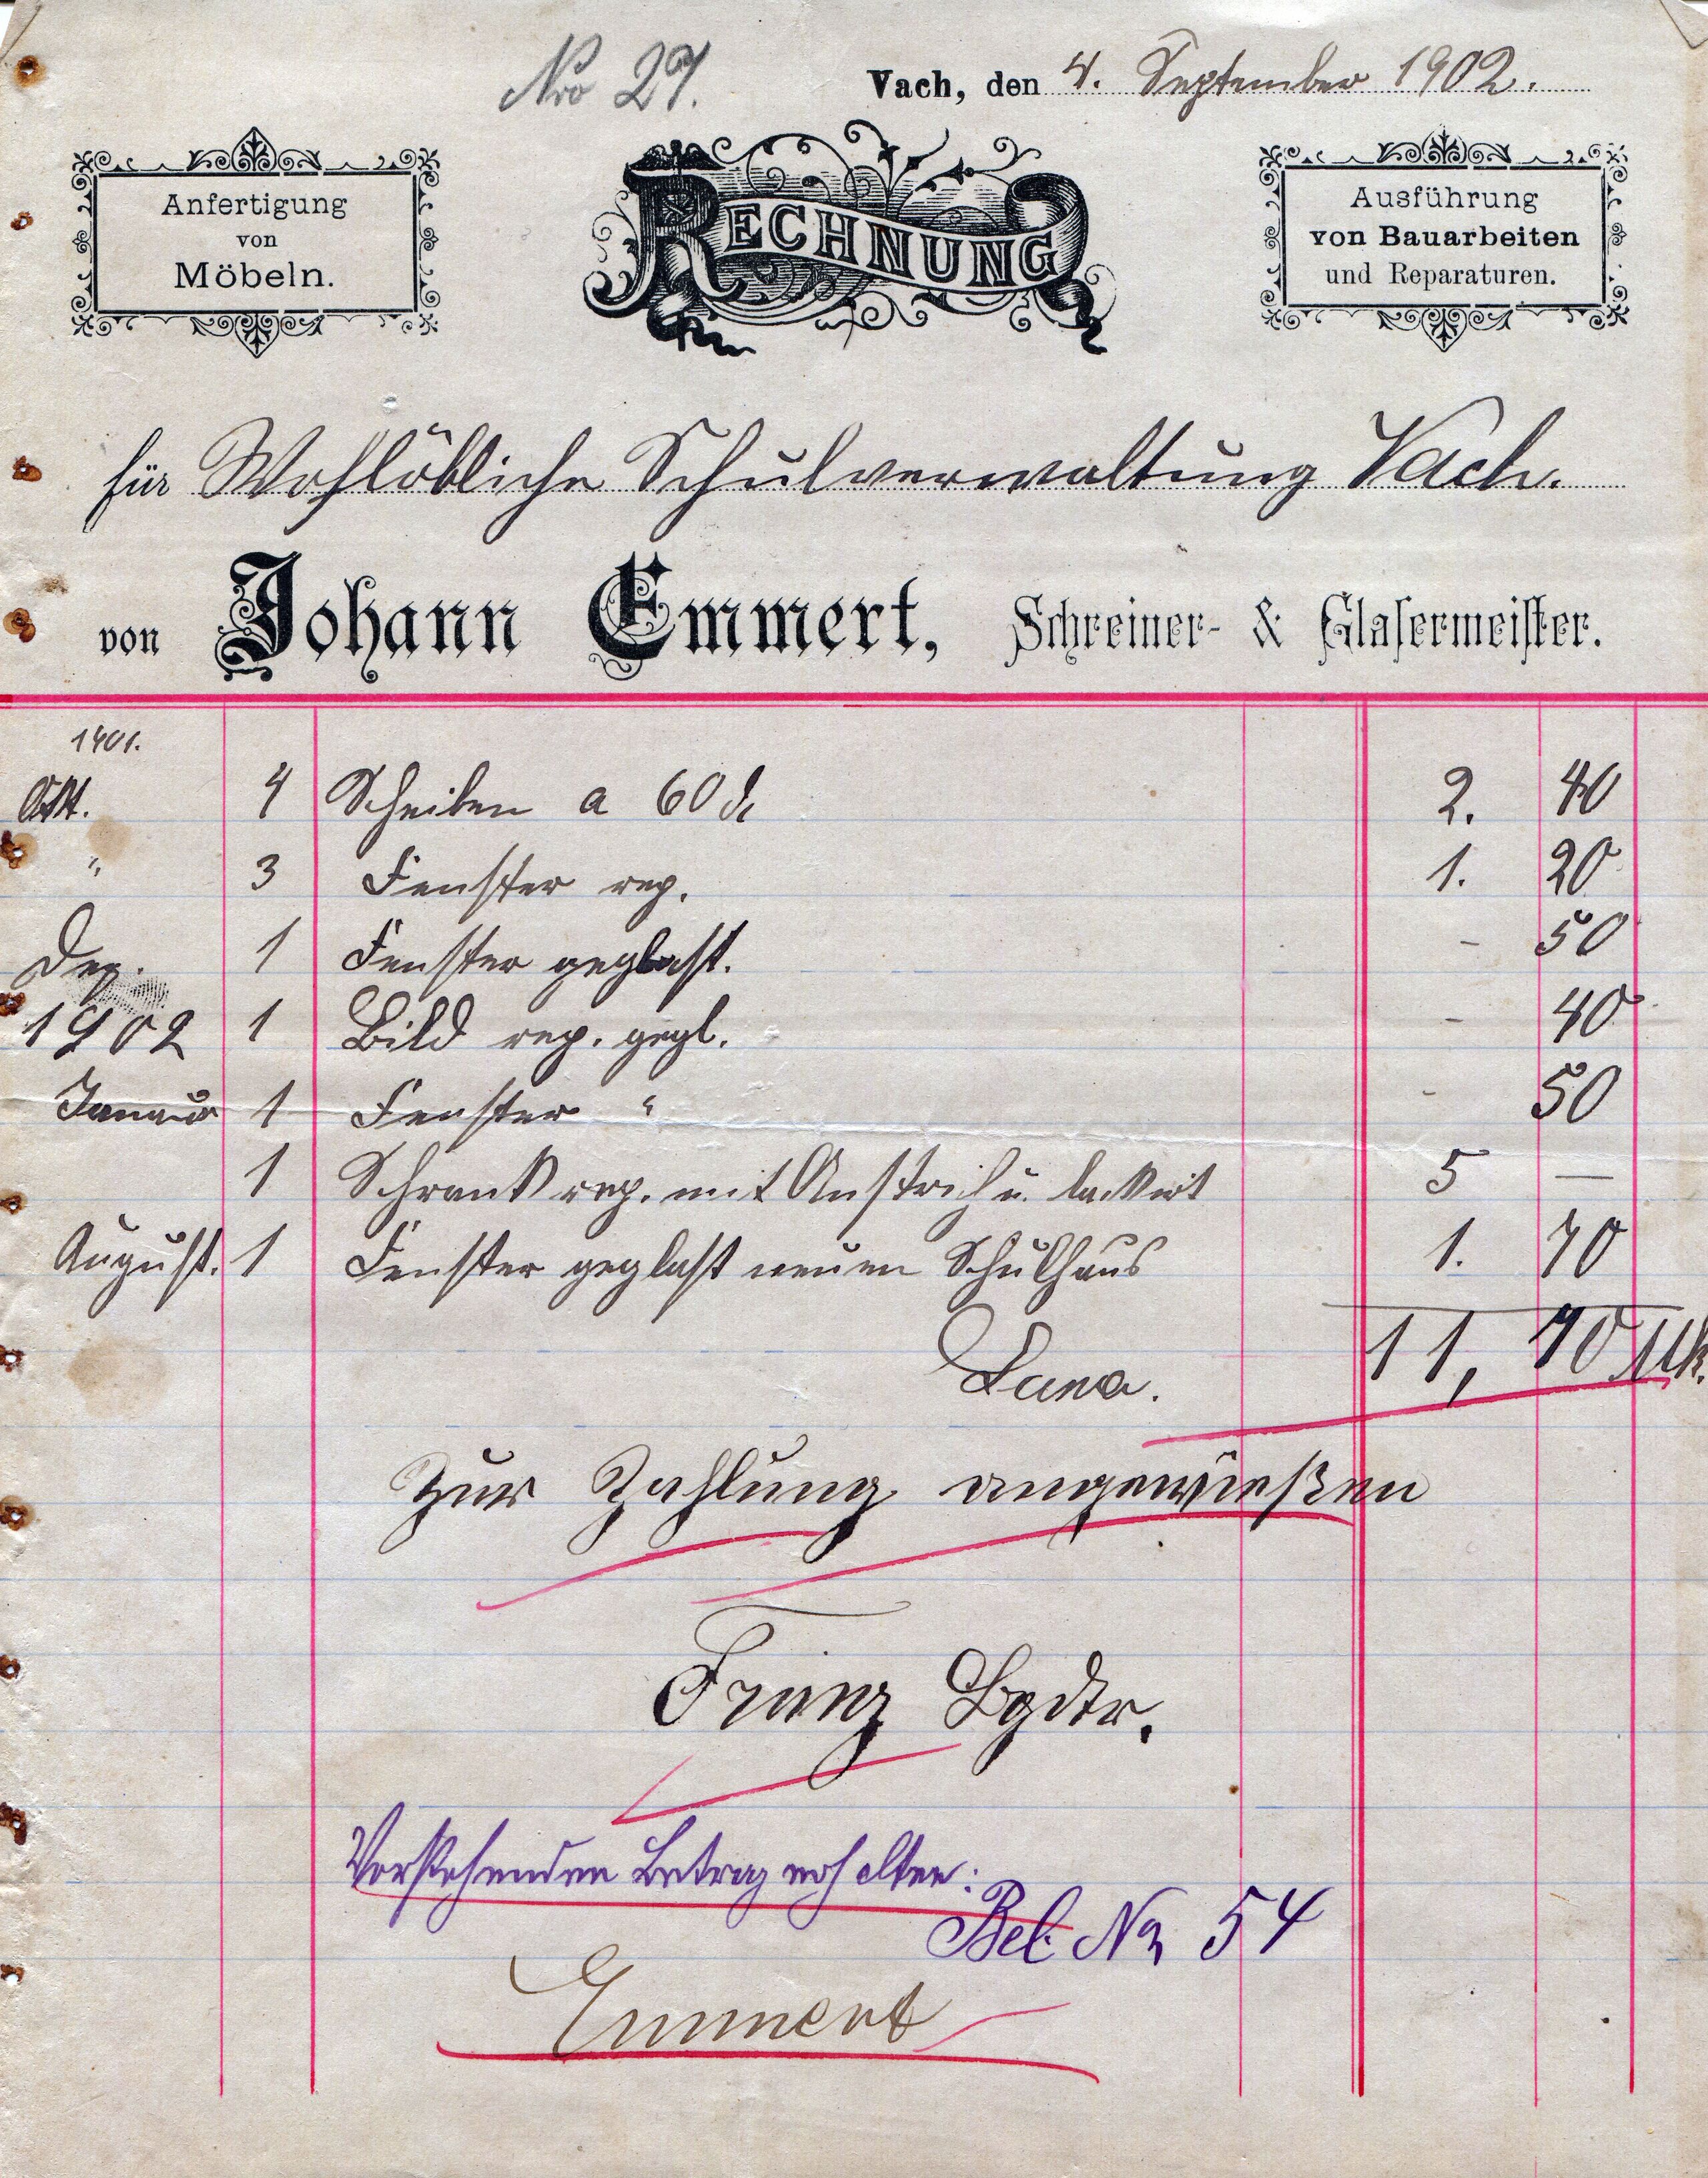 Nro 27.
Vach, den 4. September 1902.
Anfertigung
von
Möbeln.
RECHNUNG
Ausführung
von Bauarbeiten
und Reparaturen.
für Wohllöbliche Schulverwaltung Vach.
von Johann Emmert, Schreiner- & Glasermeister.
1901.
Okt. 4 Scheiben a 60 ₰ 2. 40
" 3 Fenster rep. 1. 20
Dez. 1 Fenster geglast. - 50
1902 1 Bild rep. gegl. - 40
Januar 1 Fenster " - 50
1 Schrank rep. mit Anstrich u. lackirt 5 —
August. 1 Fenster geglast neuen Schulhaus 1. 70
11,70 Mk.
Zur Zahlung angewießen
Franz
Vorstehenden Betrag erhalten:
Bel. No 54
Emmert